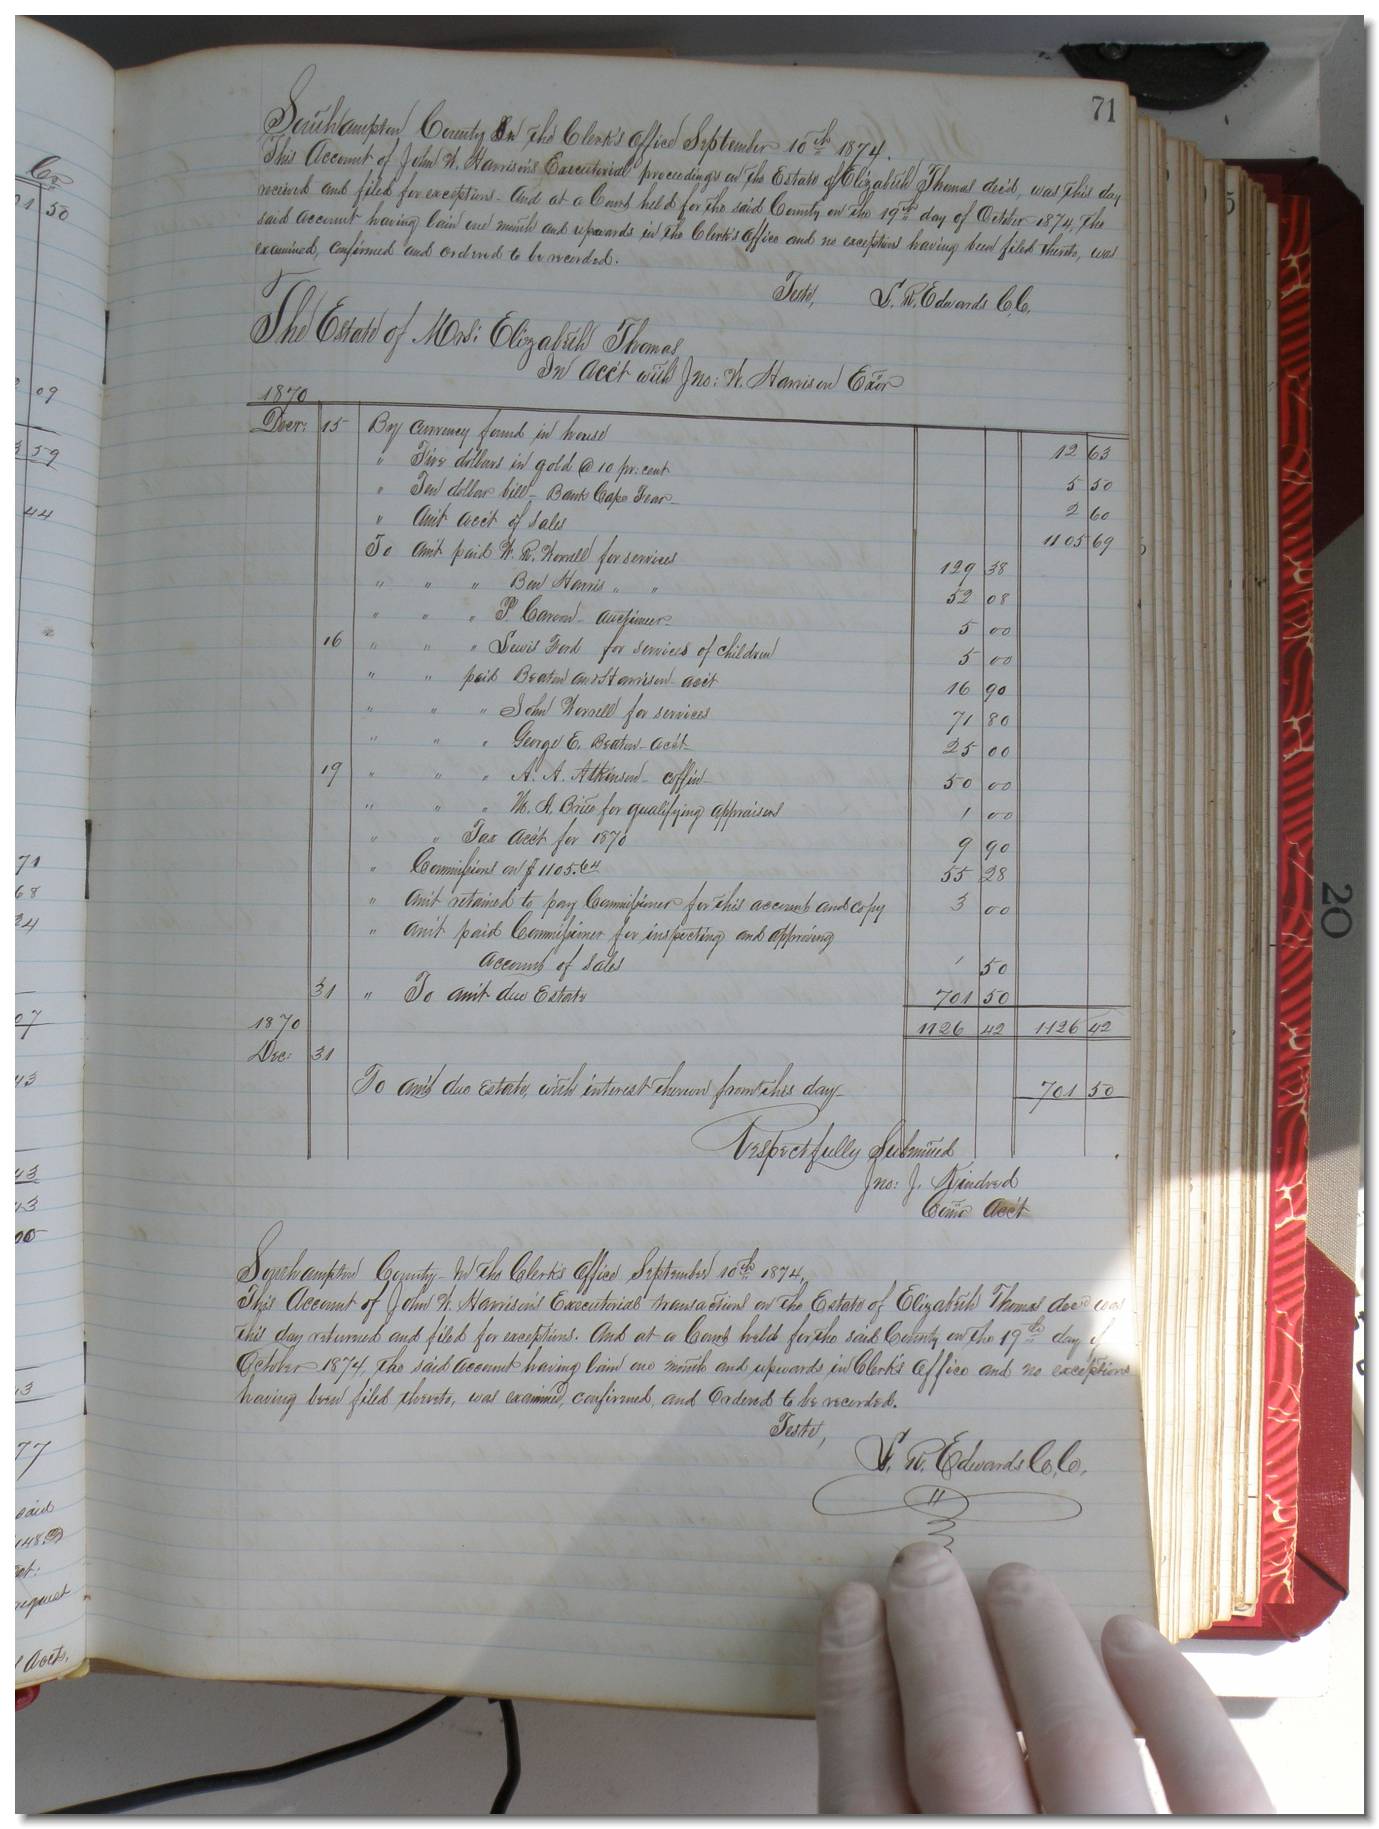 71
Southampton County In the Clerk's Office September 10th 1874.
This Account of John W. Harrison's Executorial proceedings on the Estate of Elizabeth Thomas dec'd, was this day
received and filed for exceptions. And at a Court held for the said County on the 19th day of October 1874, the
said account having lain one month and upwards in the Clerk's Office and no exceptions having been filed thereto, was
examined, confirmed and ordered to be recorded.
Teste, L. R. Edwards C.C.
The Estate of Mrs: Elizabeth Thomas
In Acc't with Jno: W. Harrison Ex'or
1870
Decr: 15 By currency found in house 12 63
" Five dollars in gold @ 10 pr: cent 5 50
" Ten dollar bill - Bank Cape Fear 2 60
" Am't acc't of sales 1105 69
To Am't paid W. R. Worrell for services 129 38
" " " Ben Harris " " 52 08
" " " P. auctioneer 5 00
16 " " " Lewis Ford for services of children 5 00
" " paid Beaton and Harrison acc't 16 90
" " " John Worrell for services 71 80
" " " George E. Beaton - Acc't 25 00
19 " " " A. A. Atkinson - coffin 50 00
" " " W. A. for qualifying appraisers 1 00
" " Tax Acc't for 1870 9 90
" Commissions on $1105.64 55 28
" Am't retained to pay Commissioner for this account and copy 3 00
" am't paid Commissioner for inspecting and approving
account of sales 1 50
31 " To am't due Estate 701 50
1870 1126 42 1126 42
Dec: 31
To am't due Estate, with interest thereon from this day 701 50
Respectfully Submitted
Jno: J. Kindred
Com'r Acc't
Southampton County - In the Clerk's Office September 10th 1874.
This Account of John W. Harrison's Executorial transactions on the Estate of Elizabeth Thomas dec'd was
this day returned and filed for exceptions. And at a Court held for the said County on the 19th day of
October 1874, the said account having lain one month and upwards in Clerk's Office and no exceptions
having been filed thereto, was examined, confirmed, and Ordered to be recorded.
Teste,
L. R. Edwards C.C.
20